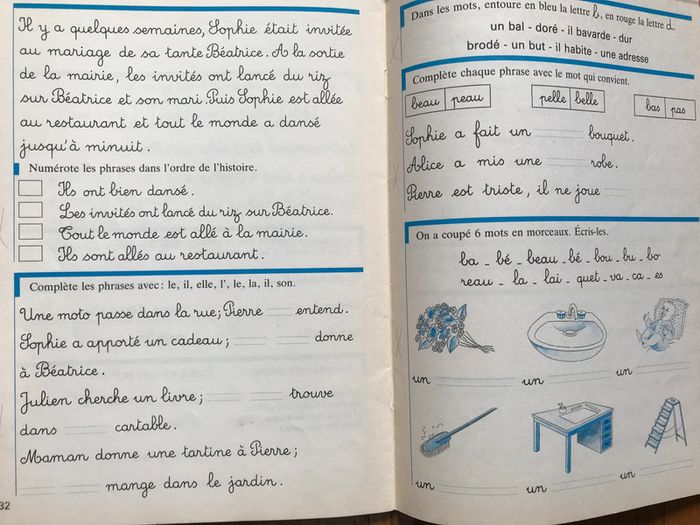 Il y a quelques semaines, Sophie était invitée
au mariage de sa tante Béatrice. A la sortie
de la mairie, les invités ont lancé du riz
sur Béatrice et son mari. Puis Sophie est allée
au restaurant et tout le monde a dansé
jusqu'à minuit.
Numérote les phrases dans l'ordre de l'histoire.
Ils ont bien dansé.
Les invités ont lancé du riz sur Béatrice.
Tout le monde est allé à la mairie.
Ils sont allés au restaurant.
Complète les phrases avec : le, il, elle, l', le, la, il, son.
Une moto passe dans la rue; Pierre entend.
Sophie a apporté un cadeau; donne
à Béatrice.
Julien cherche un livre; trouve
dans cartable.
Maman donne une tartine à Pierre;
mange dans le jardin.
32
Dans les mots, entoure en bleu la lettre b, en rouge la lettre d.
un bal - doré - il bavarde - dur
brodé - un but - il habite - une adresse
Complète chaque phrase avec le mot qui convient.
beau peau pelle belle bas pas
Sophie a fait un bouquet.
Alice a mis une robe.
Pierre est triste, il ne joue
On a coupé 6 mots en morceaux. Écris-les.
ba - bé - beau - bé - bou - bu - bo
reau - la - lai - quet - va - ca - es
un un un
un un un